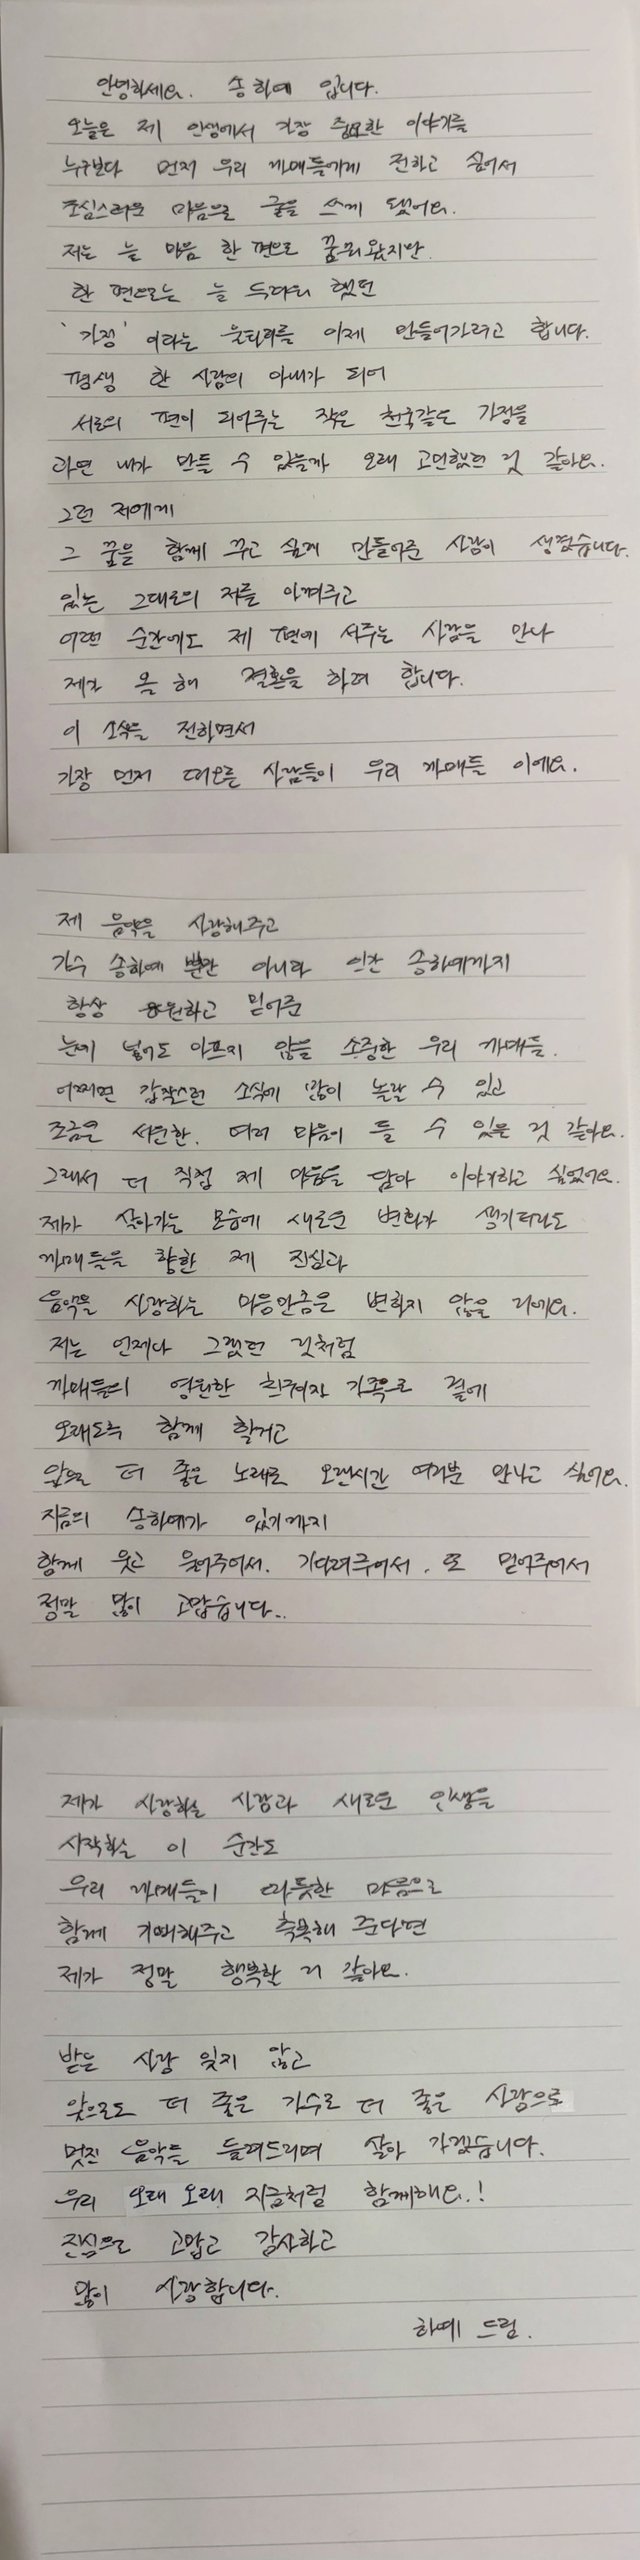 안녕하세요. 송하예 입니다.
오늘은 제 인생에서 가장 중요한 이야기를
누구보다 먼저 우리 까매들에게 전하고 싶어서
조심스러운 마음으로 글을 쓰게 됐어요.
저는 늘 마음 한 편으로 꿈꿔왔지만
한 편으로는 늘 두려워 했던
'가정' 이라는 울타리를 이제 만들어가려고 합니다.
평생 한 사람의 아내가 되어
서로의 편이 되어주는 작은 천국같은 가정을
과연 내가 만들 수 있을까 오래 고민했던 것 같아요.
그런 저에게
그 꿈을 함께 꾸고 싶게 만들어준 사람이 생겼습니다.
있는 그대로의 저를 아껴주고
어떤 순간에도 제 편에 서주는 사람을 만나
제가 올 해 결혼을 하려 합니다.
이 소식을 전하면서
가장 먼저 떠오른 사람들이 우리 까매들 이에요.
제 음악을 사랑해주고
가수 송하예 뿐만 아니라 인간 송하예까지
항상 응원하고 믿어준
눈에 넣어도 아프지 않을 소중한 우리 까매들.
어쩌면 갑작스런 소식에 많이 놀랄 수 있고
조금은 서운한. 여러 마음이 들 수 있을 것 같아요.
그래서 더 직접 제 마음을 담아 이야기하고 싶었어요.
제가 살아가는 모습에 새로운 변화가 생기더라도
까매들을 향한 제 진심과
음악을 사랑하는 마음만큼은 변하지 않을 거에요.
저는 언제나 그랬던 것처럼
까매들의 영원한 친구이자 가족으로 곁에
오래도록 함께 할거고
앞으로 더 좋은 노래로 오랜시간 여러분 만나고 싶어요.
지금의 송하예가 있기까지
함께 웃고 울어주어서. 기다려주어서. 또 믿어주어서
정말 많이 고맙습니다..
제가 사랑하는 사람과 새로운 인생을
시작하는 이 순간도
우리 까매들이 따듯한 마음으로
함께 기뻐해주고 축복해 준다면
제가 정말 행복할 거 같아요.
받은 사랑 잊지 않고
앞으로도 더 좋은 가수로 더 좋은 사람으로
멋진 음악들 들려드리며 살아 가겠습니다.
우리 오래 오래 지금처럼 함께해요.!
진심으로 고맙고 감사하고
많이 사랑합니다.
하예 드림.